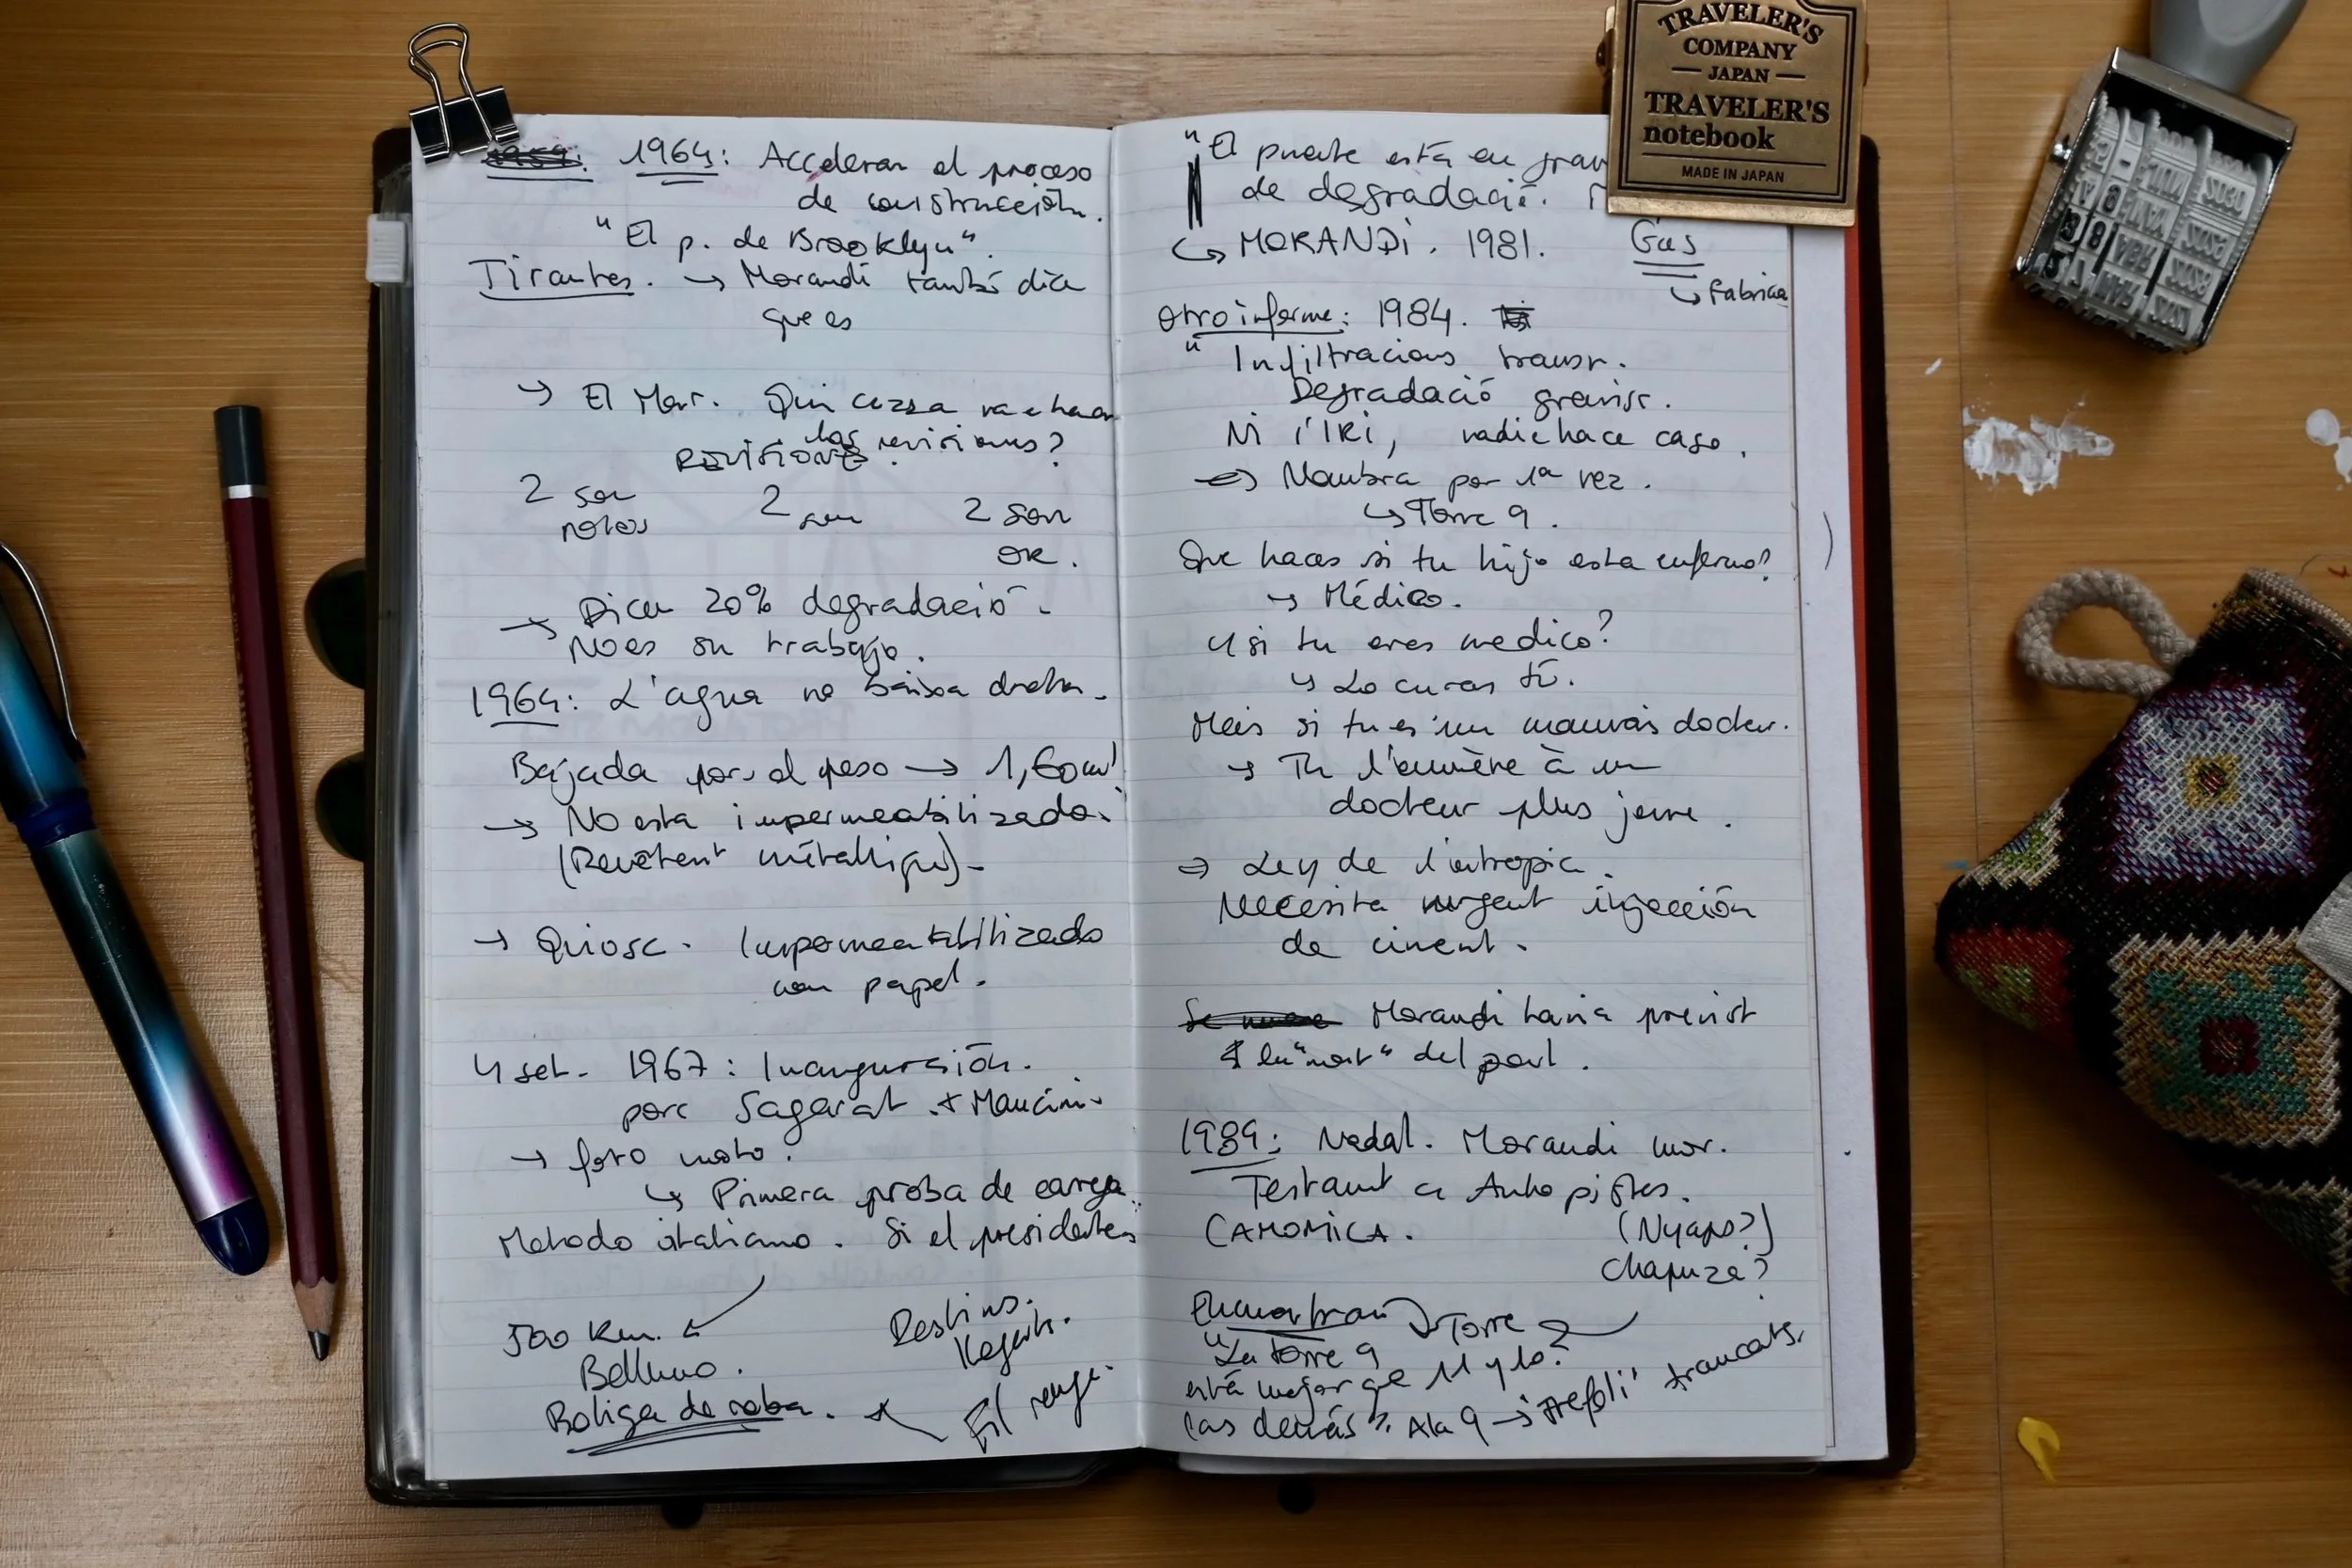 1964: Acceleran el proceso
de construcción.
"El p. de Brooklyn".
Tirantes. → Morandi també dice
que es
→ El Mar. Quin cezza va a hacer
las revisions?
2 son notes
2 son
2 son OK.
→ Dicen 20% degradació.
No es su trabajo.
1964: L'agua no baixa dreta.
Bajada por el peso → 1,60m!
→ No esta impermeabilizado.
(Revêtent métallique).
→ Quiosc. Impermeabilizado
con papel.
4 set. 1967: Inauguración.
porc Sagarat + Mancini.
→ foto moto.
↳ Primera proba de carga.
Metodo italiano. Si el presidente
500 Km.
Belluno.
Botiga de roba.
TRAVELER'S
COMPANY
JAPAN
TRAVELER'S
notebook
MADE IN JAPAN
"El puente está en grav
de degradació.
↳ MORANDI. 1981.
Gas
↳ Fabrica
Otro informe: 1984.
"Infiltracions transv.
Degradació graviss.
Ni l'IRI, nadie hace caso.
→ Nombra por 1ª vez.
↳ Torre 9.
Que haces si tu hijo esta enfermo?
→ Médico.
Y si tu eres medico?
↳ Lo curas tú.
Mais si tu es un mauvais docteur.
→ Tu l'emmène à un
docteur plus jeune.
→ Ley de l'entropia.
Necesita urgent injección
de ciment.
Morandi havia previst
la "mort" del pont.
1989: Nadal. Morandi mor.
Testament a Autopistes.
CAMOMICA.
(Nyapo?)
Chapuza?
Encuentran → Torre
"La torre 9
11 y 10?
está mejor que
las demás". A la 9 → 'trefoli' trancats.